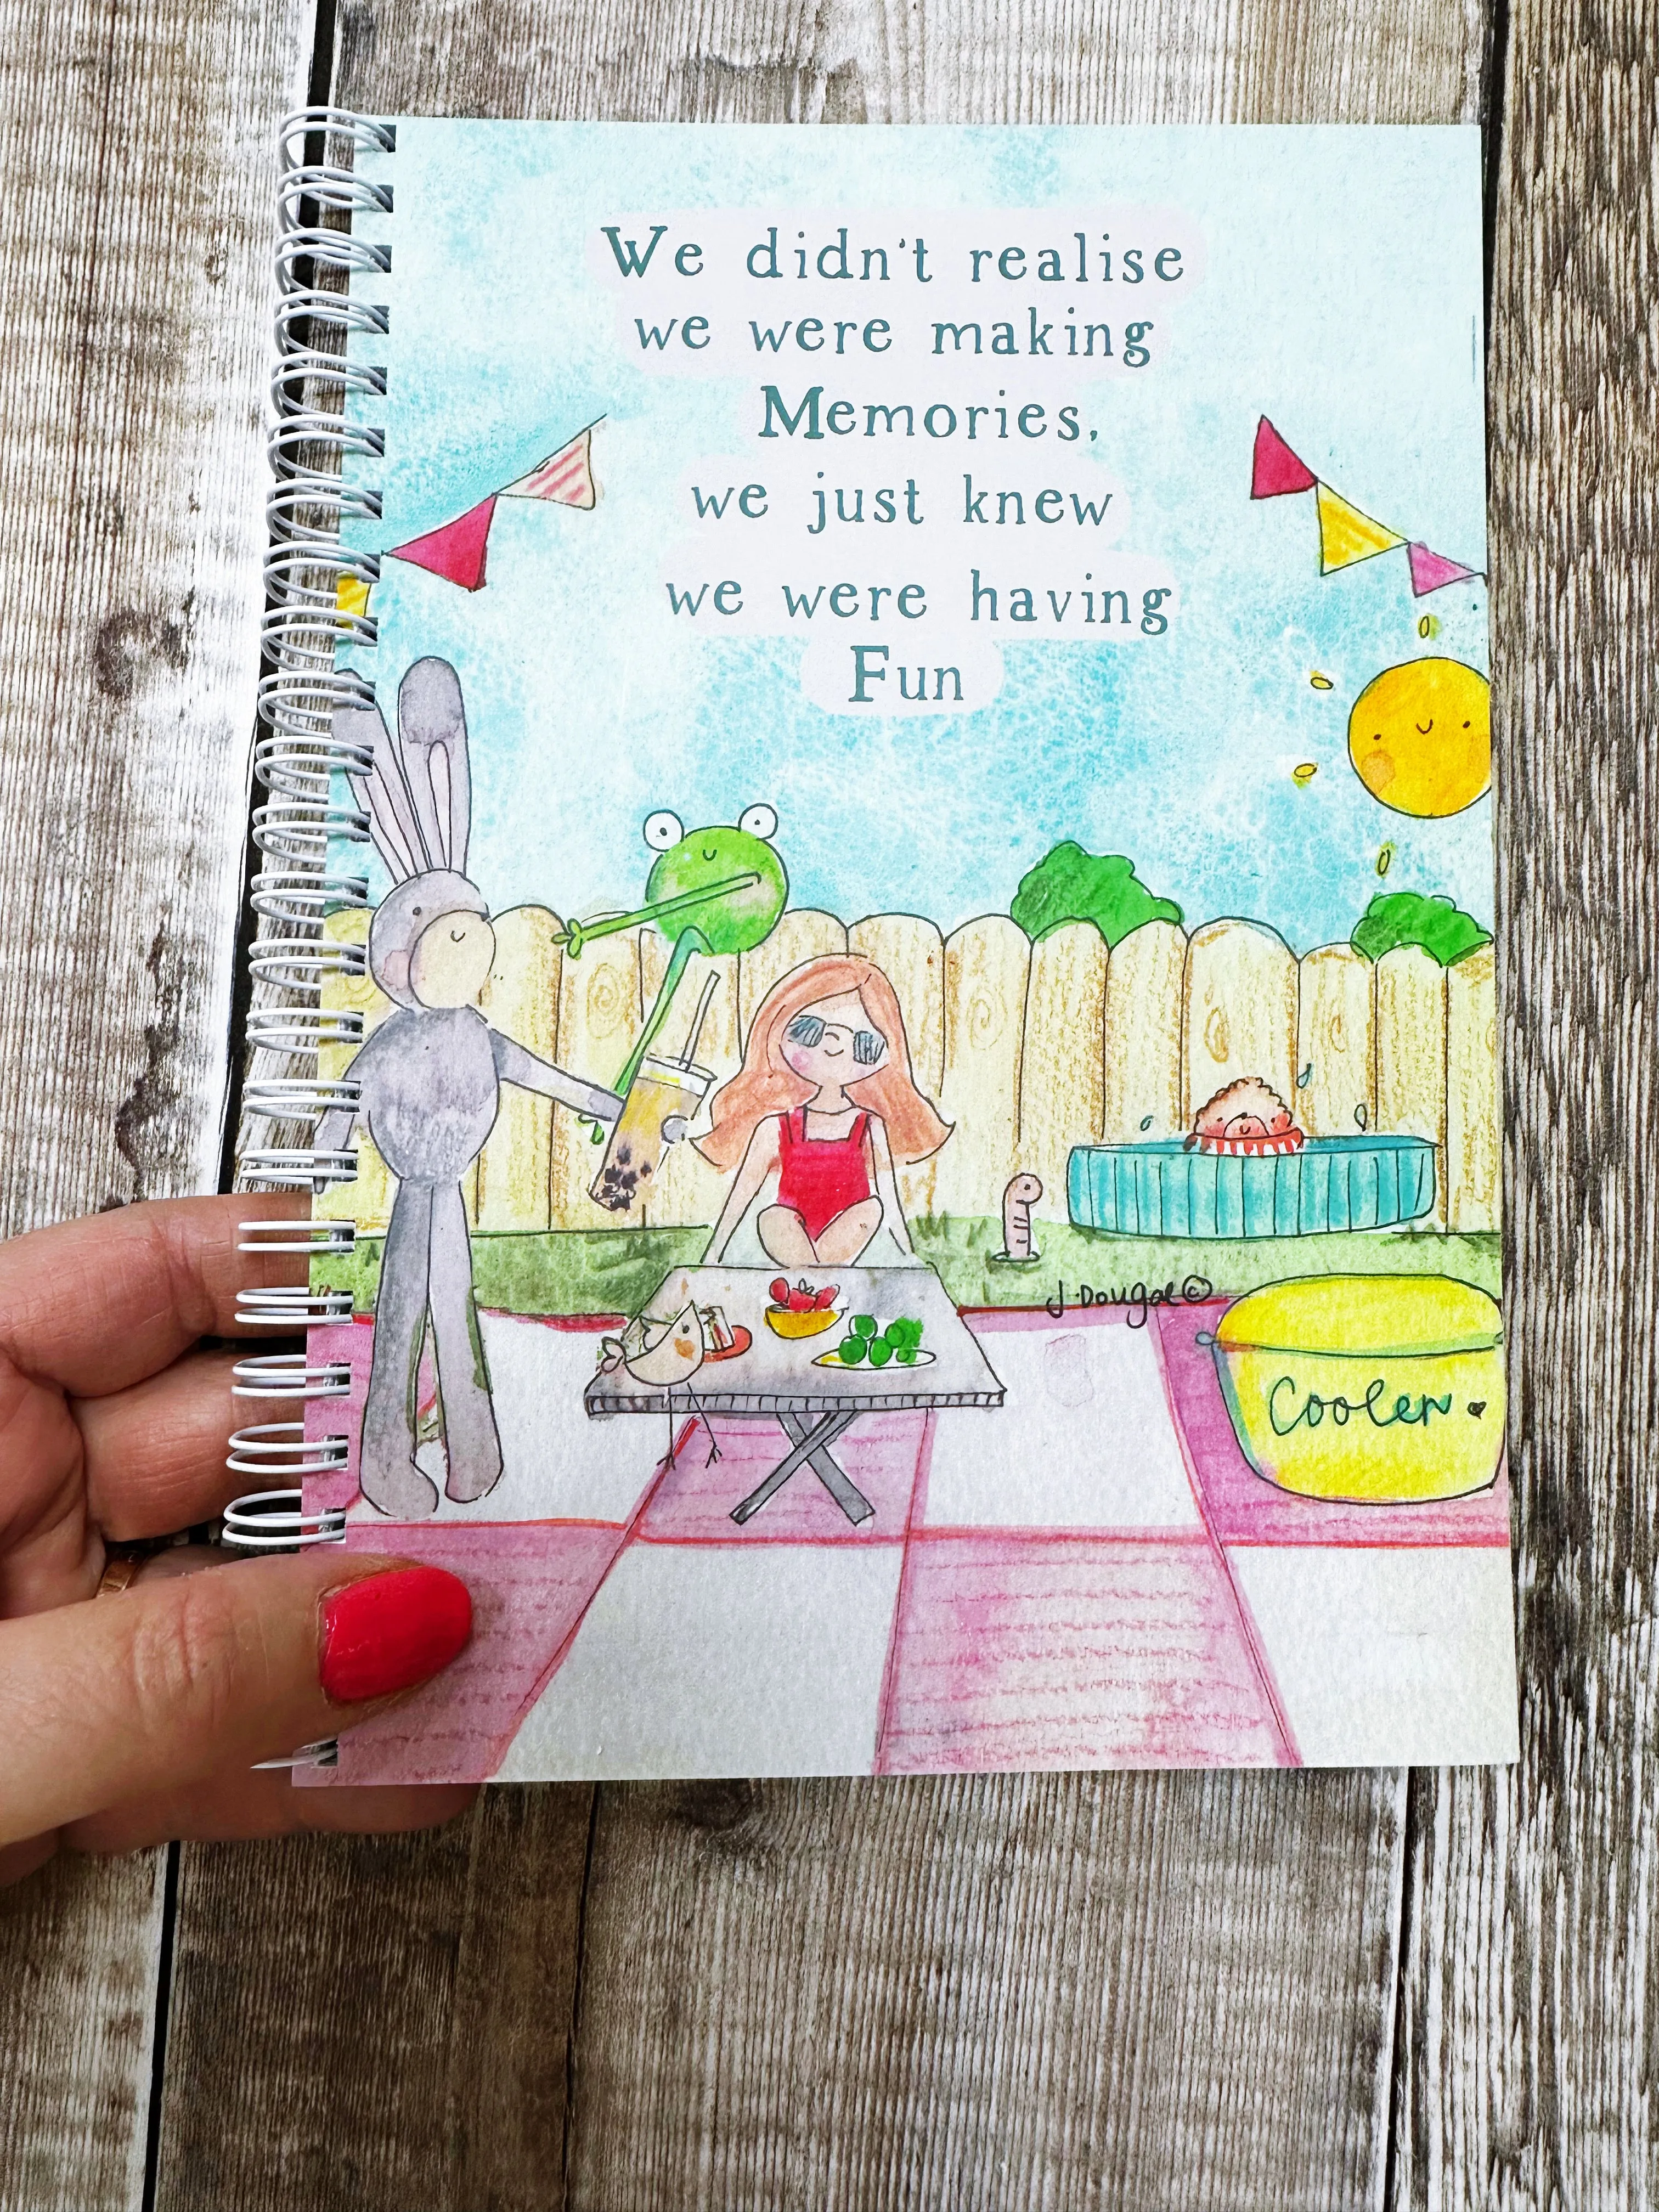 We didn't realise
we were making
Memories,
we just knew
we were having
Fun
J.Dougal©
Cooler